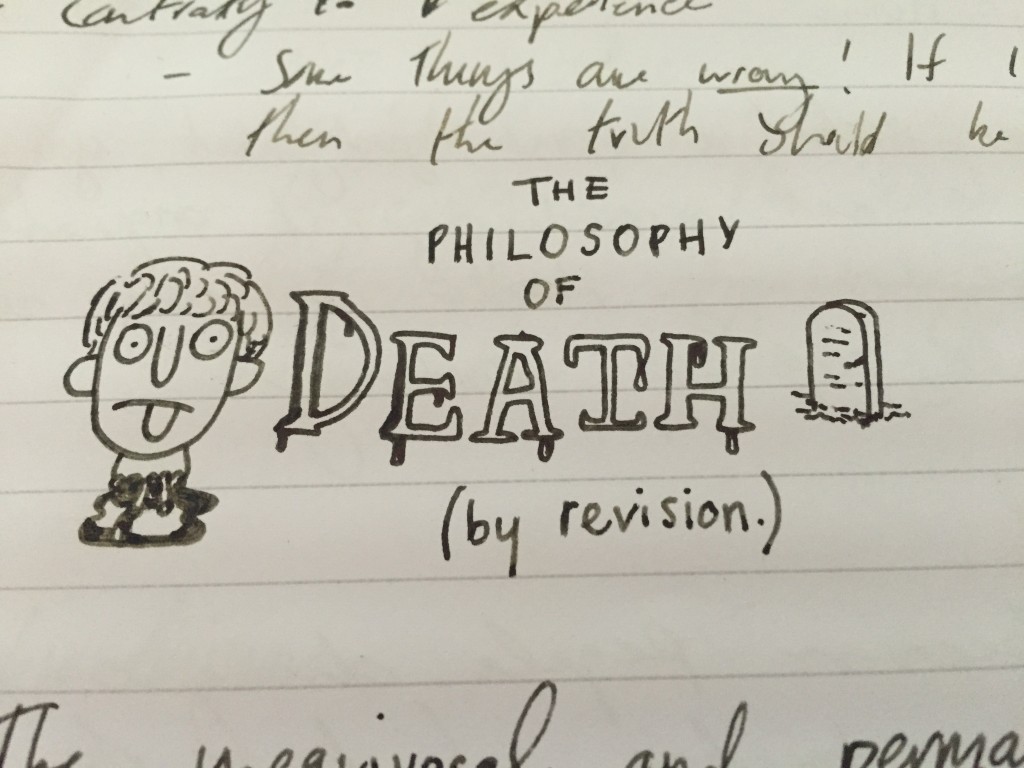 Contrary to experience
- Some things are wrong! If
then the truth should be
THE
PHILOSOPHY
OF
DEATH
(by revision.)
The unequivocal and perma